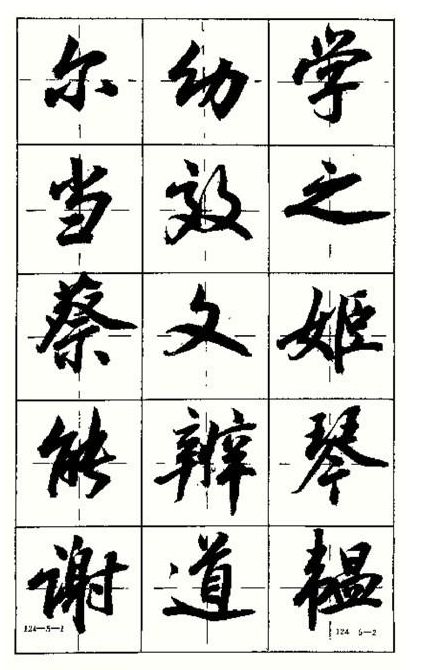 尔幼学
当效之
蔡文姬
能辨琴
谢道韫
124-5-1
124 5-2